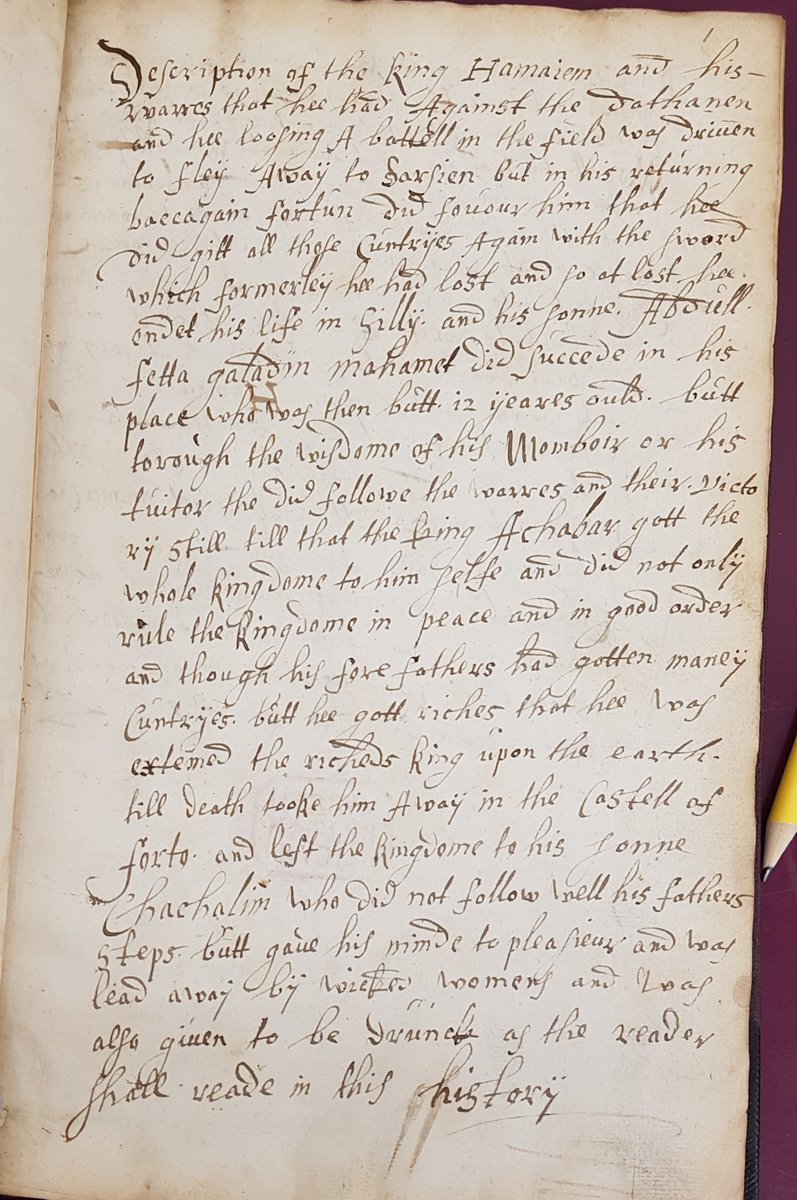 1
Description of the king Hamaiem and his–
warres that hee had Against the dathanen
and hee loosing A battell in the field was driuen
to fley Away to Parsien but in his returning
baccagain fortun did fouour him that hee
did gitt all those Cuntryes Again with the sword
which formerley hee had lost and so at last hee.
endet his life in Dilly. and his sonne. Abdull.
fetta galadin mahamet did succede in his
place who was then butt. 12 yeares ould. butt
torough the wisdome of his Momboir or his
tuitor the did followe the warres and their. Victo
ry still. till that the king Achabar gott the
whole kingdome to him selfe and did not only
rule the kingdome in peace and in good order
and though his fore fathers had gotten maney
Cuntryes. butt hee gott riches that hee was
extemed the richeds king upon the earth.
till death tooke him Away in the Castell of
forto. and left the kingdome to his sonne
Chachalim who did not follow well his fathers
steps. butt gaue his minde to pleasieur and was
lead away by wicked womens and was
also giuen to be drunck as the reader
shall reade in this history